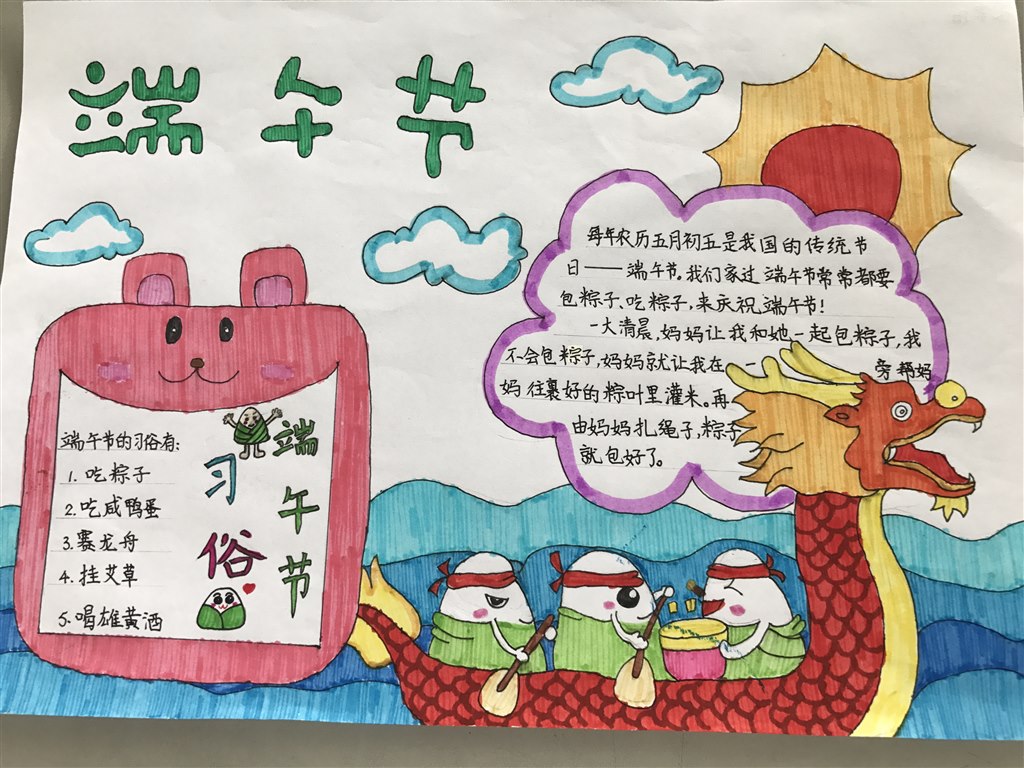 端午节
每年农历五月初五是我国的传统节
日——端午节。我们家过端午节常常都要
包粽子、吃粽子,来庆祝端午节!
一大清晨,妈妈让我和她一起包粽子,我
不会包粽子,妈妈就让我在一旁帮妈
妈往裹好的粽叶里灌米。再
由妈妈扎绳子,粽子
就包好了。
端午节的习俗有:
1. 吃粽子
2. 吃咸鸭蛋
3. 赛龙舟
4. 挂艾草
5. 喝雄黄酒
端午节
习俗